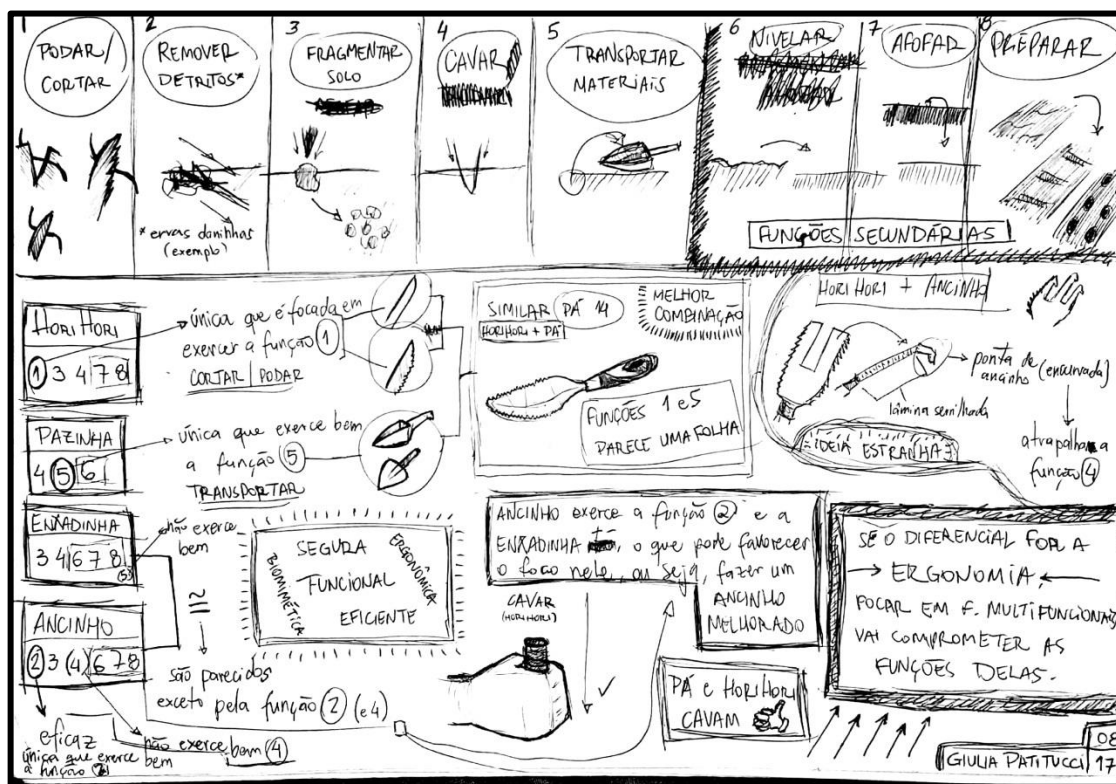 1
PODAR/
CORTAR
2
REMOVER
DETRITOS*
* ervas daninhas
(exemplo)
3
FRAGMENTAR
SOLO
4
CAVAR
5
TRANSPORTAR
MATERIAIS
6
NIVELAR
7
AFOFAR
8
PREPARAR
FUNÇÕES SECUNDÁRIAS
HORI HORI
1 3 4 7 8
única que é focada em
exercer a função 1
CORTAR/PODAR
PAZINHA
4 5 6
única que exerce bem
a função 5
TRANSPORTAR
ENXADINHA
3 4 6 7 8
(5)
não exerce
bem
ANCINHO
2 3 (4) 6 7 8
eficaz
única que exerce
a função 2
não exerce bem 4
bem
≅
são parecidos
exceto pela função 2 (e 4)
SEGURA
BIOMIMÉTICA
FUNCIONAL
ERGONÔMICA
EFICIENTE
SIMILAR PÁ 14
HORIHORI + PÁ
MELHOR
COMBINAÇÃO
FUNÇÕES 1 e 5
PARECE UMA FOLHA
HORI HORI + ANCINHO
ponta de
ancinho (encurvada)
lâmina serrilhada
atrapalha a
função 4
IDEIA ESTRANHA
ANCINHO exerce a função 2 e a
ENXADINHA ñ, o que pode favorecer
o foco nele, ou seja, fazer um
ANCINHO
MELHORADO
CAVAR
(HORI HORI)
PÁ e HORI HORI
CAVAM
SE O DIFERENCIAL FOR A
ERGONOMIA,
FOCAR EM F. MULTIFUNCIONAIS
VAI COMPROMETER AS
FUNÇÕES DELAS.
GIULIA PATITUCCI
08
17